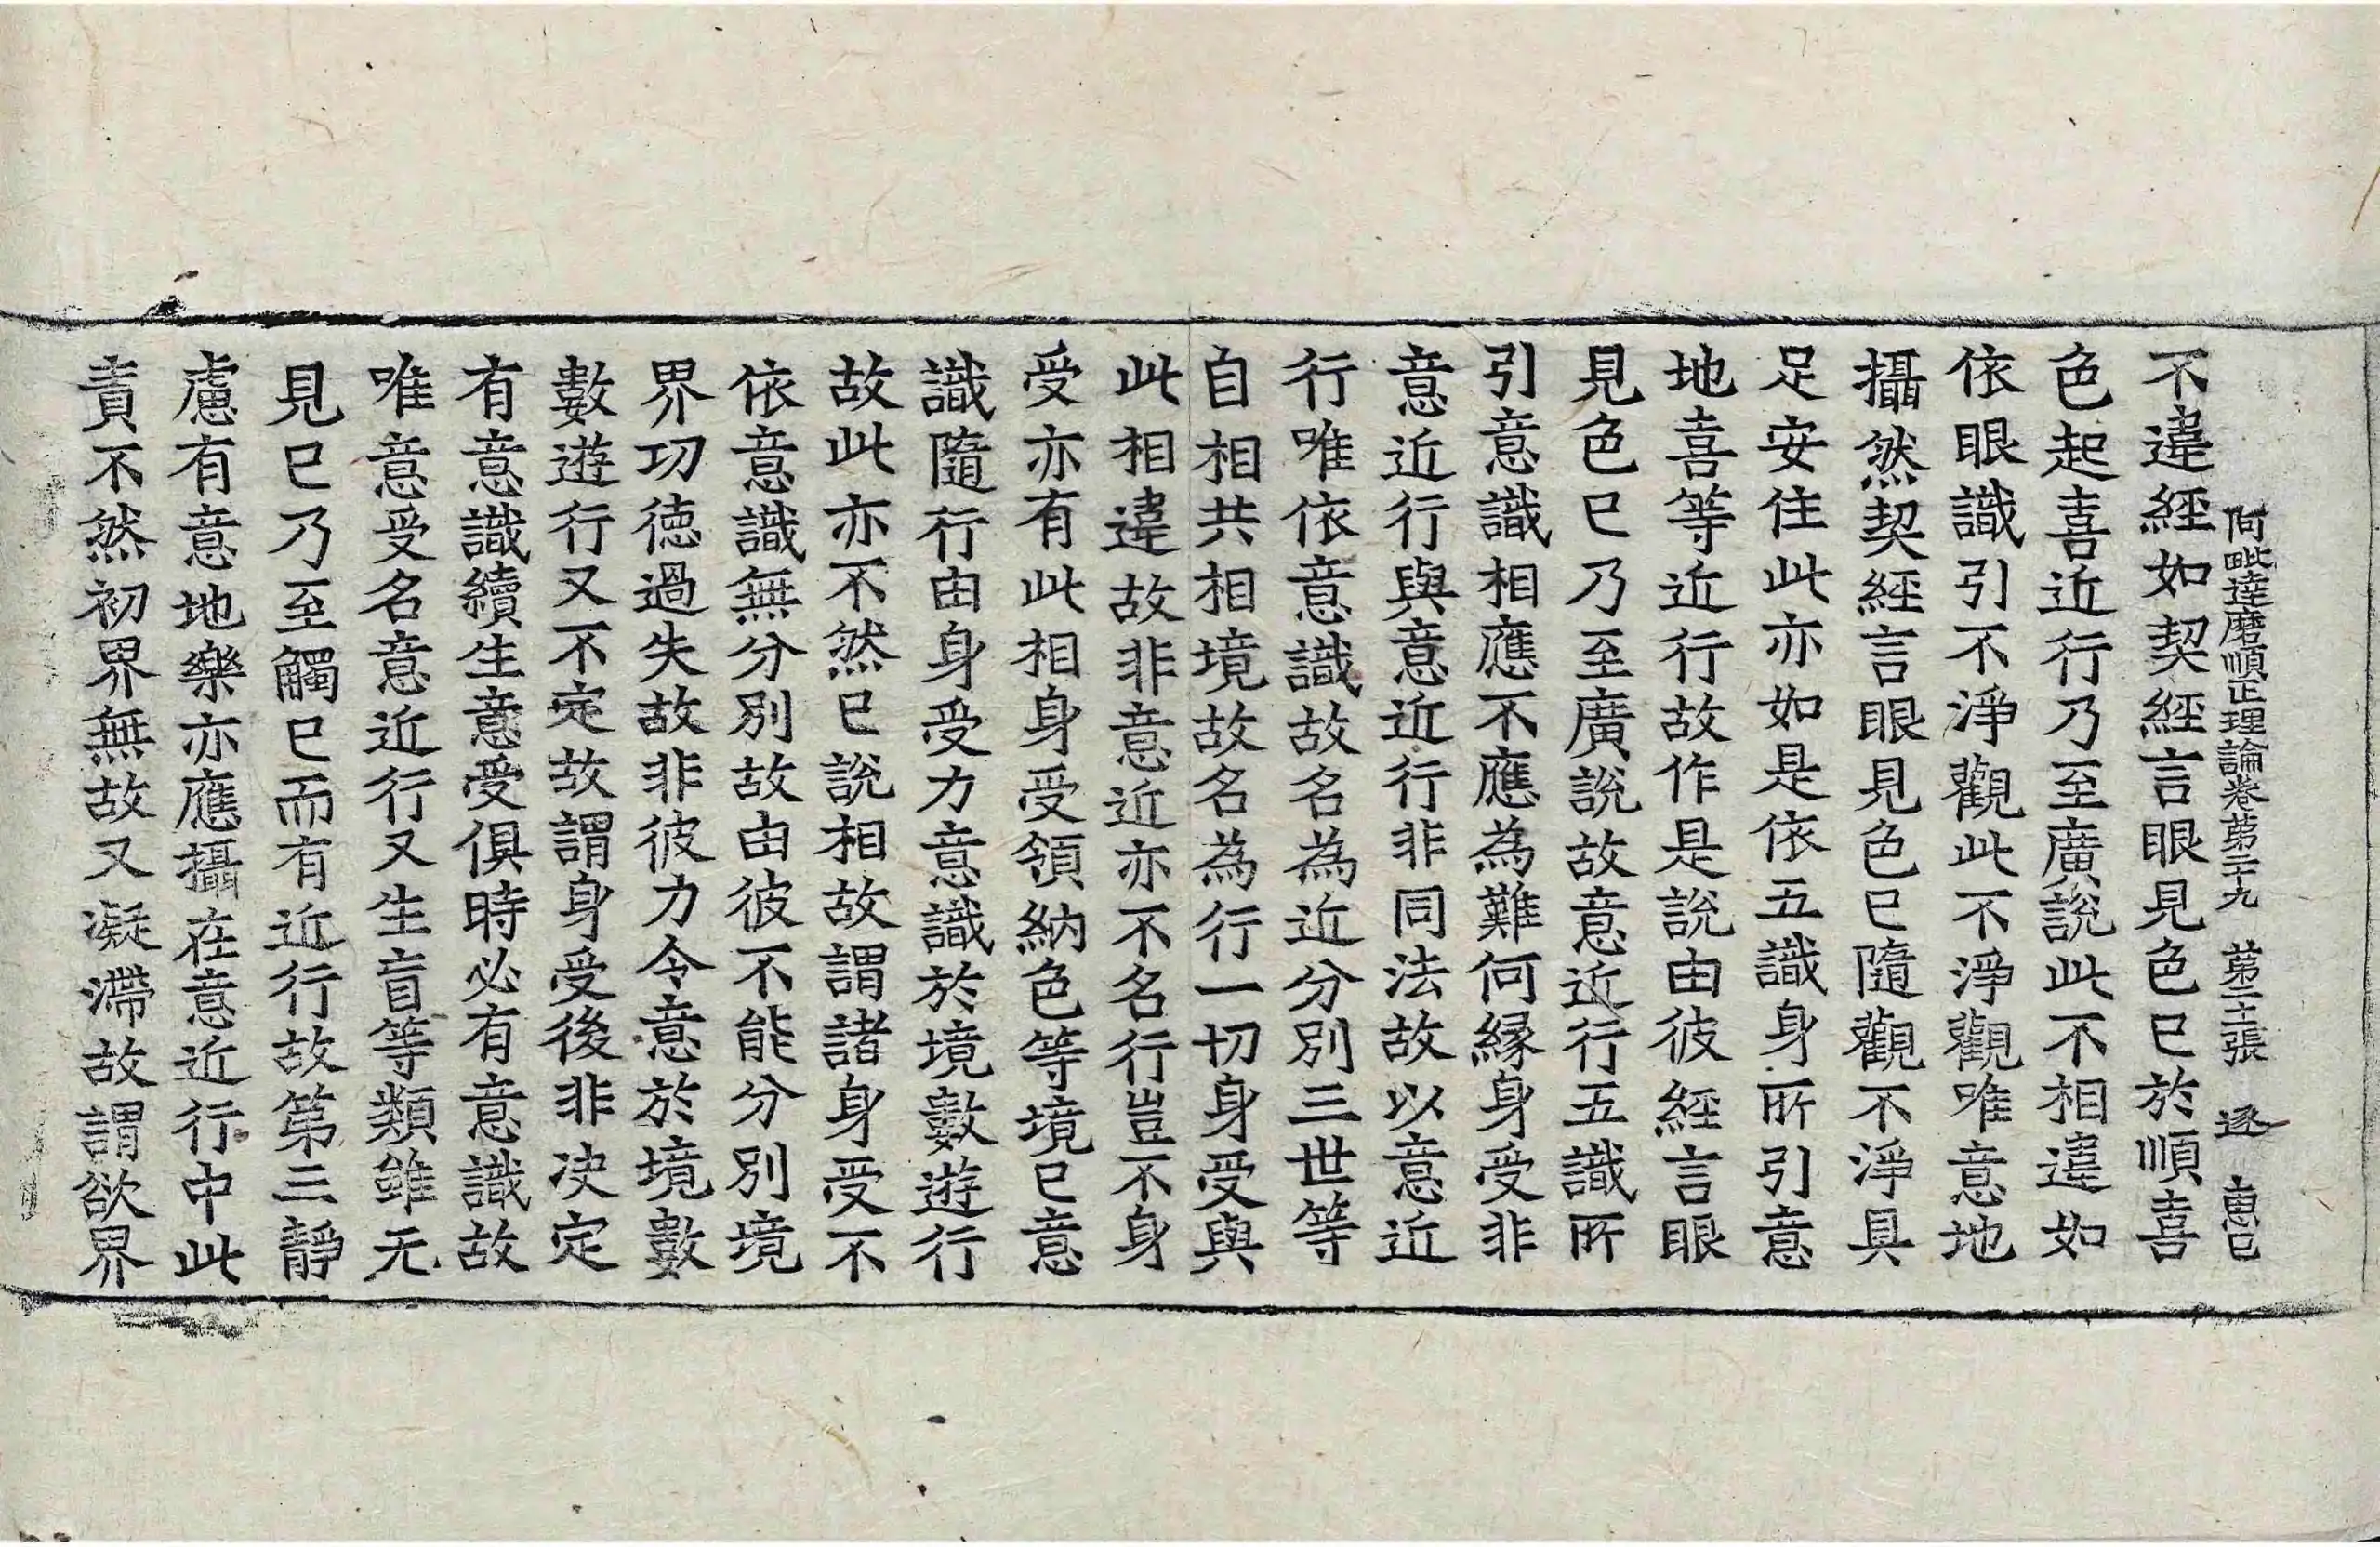 阿毗達磨順正理論卷第二十九　第二十張　逐　惠巳
不違經如契經言眼見色已於順喜
色起喜近行乃至廣說此不相違如
依眼識引不淨觀此不淨觀唯意地
攝然契經言眼見色已隨觀不淨具
足安住此亦如是依五識身所引意
地喜等近行故作是說由彼經言眼
見色已乃至廣說故意近行五識所
引意識相應不應為難何緣身受非
意近行與意近行非同法故以意近
行唯依意識故名為近分別三世等
自相共相境故名為行一切身受與
此相違故非意近亦不名行豈不身
受亦有此相身受領納色等境已意
識隨行由身受力意識於境數遊行
故此亦不然已說相故謂諸身受不
依意識無分別故由彼不能分別境
界功德過失故非彼力令意於境數
數遊行又不定故謂身受後非決定
有意識續生意受俱時必有意識故
唯意受名意近行又生盲等類雖无
見已乃至觸已而有近行故第三靜
慮有意地樂亦應攝在意近行中此
責不然初界無故又凝滯故謂欲界